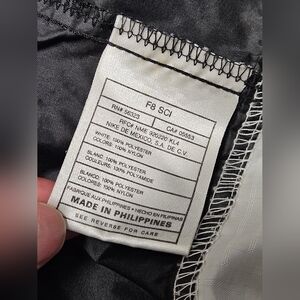 F8 SCI
RN# 56323 CA# 05553
RFC# NME 920220 KL4
NIKE DE MEXICO, S.A. DE C.V.
WHITE: 100% POLYESTER
COLORS: 100% NYLON
BLANC: 100% POLYESTER
COULEURS: 100% POLYAMIDE
BLANCO: 100% POLYESTER
COLORES: 100% NYLON
FABRIQUE AUX PHILIPPINES • HECHO EN FILIPINAS
MADE IN PHILIPPINES
SEE REVERSE FOR CARE